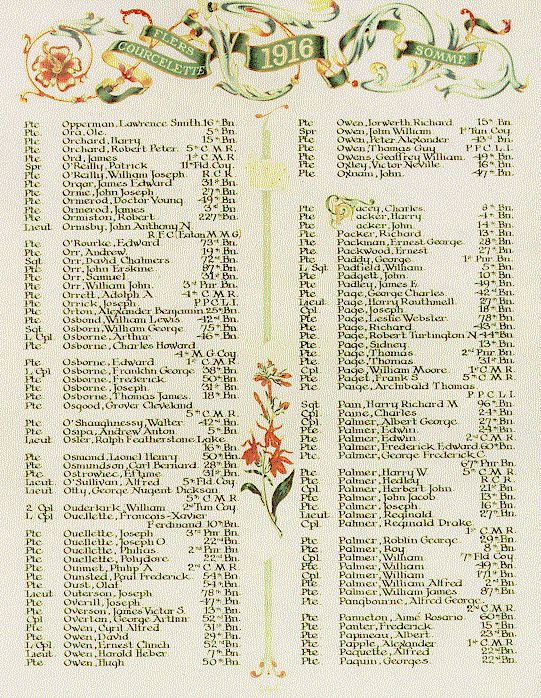 FLERS
COURCELETTE
1916
SOMME
Pte Opperman, Lawrence Smith. 16th Bn.
Pte Ora, Ole. 5th Bn.
Pte Orchard, Harry 15th Bn.
Pte Orchard, Robert Peter. 5th C.M.R.
Pte Ord, James 1st C.M.R.
Spr O'Reilly, Patrick 11th Fld. Coy.
Pte O'Reilly, William Joseph. R.C.R.
Pte Organ, James Edward 31st Bn.
Pte Orme, John Joseph 27th Bn.
Pte Ormerod, Doctor Young 49th Bn.
Pte Ormerod, James 3rd Bn.
Pte Ormiston, Robert 227th Bn.
Lieut Ormsby, John Anthony N.
R.F.C. Eaton M.M.G.
Pte O'Rourke, Edward 73rd Bn.
Pte Orr, Andrew 19th Bn.
Sgt Orr, David Chalmers 72nd Bn.
Pte Orr, John Erskine 87th Bn.
Pte Orr, Samuel 31st Bn.
Pte Orr, William John. 3rd Pnr. Bn.
Pte Orrett, Adolph A. 4th C.M.R.
Pte Orrick, Joseph P.P.C.L.I.
Pte Orton, Alexander Benjamin. 25th Bn.
Pte Osbond, William Lewis 42nd Bn.
Sgt Osborn, William George 75th Bn.
L Cpl Osborne, Arthur 46th Bn.
Pte Osborne, Charles Howard
4th M.G. Coy.
Pte Osborne, Edward 1st C.M.R.
L Cpl Osborne, Franklin George 38th Bn.
Pte Osborne, Frederick 50th Bn.
Pte Osborne, Joseph 31st Bn.
Pte Osborne, Thomas James. 18th Bn.
Pte Osgood, Grover Cleveland
5th C.M.R.
Pte O'Shaughnessy, Walter 42nd Bn.
Pte Osipa, Andrew Anton 25th Bn.
Lieut Osler, Ralph Featherstone Lake
16th Bn.
Pte Osmond, Lionel Henry 50th Bn.
Pte Osmundson, Carl Bernard 28th Bn.
Pte Ostrowiec, Effyme 31st Bn.
Lieut O'Sullivan, Alfred 5th Fld. Coy.
Lieut Otty, George Nugent Dickson
5th C.M.R.
2 Cpl Ouderkirk, William 2nd Tun Coy
L Cpl Ouellette, François-Xavier
Ferdinand 10th Bn.
Pte Ouellette, Joseph 3rd Pnr Bn.
Pte Ouellette, Joseph O. 22nd Bn.
Pte Ouellette, Philias 2nd Pnr Bn.
Pte Ouellette, Polydore 22nd Bn.
Pte Ouimet, Philip A. 2nd C.M.R.
Pte Ounsted, Paul Frederick 54th Bn.
Pte Oust, Olaf 54th Bn.
Lieut Outerson, Joseph 78th Bn.
Pte Overill, Joseph 47th Bn.
Pte Overson, James Victor S. 15th Bn.
Cpl Overton, George Arthur 52nd Bn.
Pte Owen, Cyril Alfred 31st Bn.
Pte Owen, David 29th Bn.
L/Cpl Owen, Ernest Clinch 52nd Bn.
Lieut Owen, Harold Heber 7th Bn.
Pte Owen, Hugh 50th Bn.
Pte Owen, Iorwerth Richard 15th Bn.
Spr Owen, John William 1st Tun Coy.
Pte Owen, Peter Alexander 43rd Bn.
Pte Owen, Thomas Guy P.P.C.L.I.
Pte Owens, Geoffrey William. 49th Bn.
Pte Oxley, Victor Neville 16th Bn.
Pte Oxnam, John. 47th Bn.
Pte Pacey, Charles. 8th Bn.
Pte Packer, Harry 4th Bn.
Pte Packer, John 14th Bn.
Pte Packer, Richard 13th Bn.
Pte Packman, Ernest George 28th Bn.
Pte Packwood, Ernest 27th Bn.
Pte Paddy, George 1st Pnr. Bn.
L Sgt Padfield, William 5th Bn.
Pte Padgett, John 10th Bn.
Pte Padley, James E. 49th Bn.
Pte Page, George Charles 42nd Bn.
Lieut Page, Harry Routhnell 27th Bn.
Cpl Page, Joseph 18th Bn.
Pte Page, Leslie Webster 78th Bn.
Pte Page, Richard 43rd Bn.
Pte Page, Robert Turtington N. 44th Bn.
Pte Page, Sidney 13th Bn.
Pte Page, Thomas 2nd Pnr Bn.
Pte Page, Thomas 31st Bn.
Cpl Page, William Moore 1st C.M.R.
Pte Paget, Frank S. 5th C.M.R.
Pte Paige, Archibald Thomas
P.P.C.L.I.
Sgt Pain, Harry Richard M. 96th Bn.
Cpl Paine, Charles 24th Bn.
Cpl Palmer, Albert George 27th Bn.
Pte Palmer, Edwin 24th Bn.
Pte Palmer, Edwin 2nd C.M.R.
Pte Palmer, Frederick Edward 60th Bn.
Pte Palmer, George Frederick C.
67th Pnr Bn.
Pte Palmer, Harry W. 5th C.M.R.
Pte Palmer, Hedley R.C.R.
Cpl Palmer, Herbert John 21st Bn.
Pte Palmer, John Jacob 13th Bn.
Pte Palmer, Joseph 16th Bn.
Lieut Palmer, Reginald 27th Bn.
Cpl. Palmer, Reginald Drake
1st C.M.R.
Pte Palmer, Roblin George 29th Bn.
Pte Palmer, Roy 8th Bn.
Cpl Palmer, William 7th Fld Coy
Pte Palmer, William 49th Bn.
Cpl Palmer, William 171st Bn.
Pte Palmer, William Alfred 2nd Bn.
Pte Palmer, William James 87th Bn.
Pte Pangbourne, Alfred George
2nd C.M.R.
Pte Panneton, Aimé Rosario 60th Bn.
Pte Panter, Frederick 15th Bn.
Pte Papineau, Albert 23rd Bn.
Pte Papple, Alexander 1st C.M.R.
Pte Paquette, Alfred 22nd Bn.
Pte Paquin, Georges 22nd Bn.